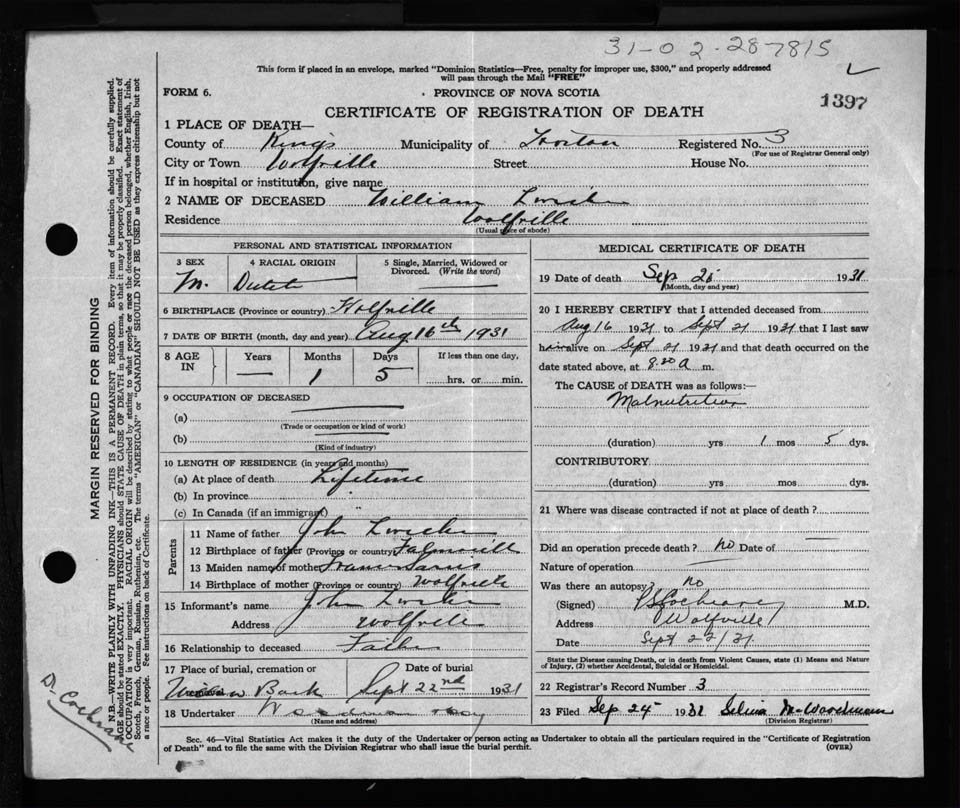 31-02-287815
This form if placed in an envelope, marked "Dominion Statistics—Free, penalty for improper use, $300," and properly addressed
will pass through the Mail "FREE"
FORM 6.
PROVINCE OF NOVA SCOTIA
1397
CERTIFICATE OF REGISTRATION OF DEATH
1 PLACE OF DEATH—
County of Kings Municipality of Horton Registered No. 3
(For use of Registrar General only)
City or Town Wolfville Street House No.
If in hospital or institution, give name
2 NAME OF DECEASED William
Residence Wolfville
(Usual place of abode)
PERSONAL AND STATISTICAL INFORMATION
3 SEX 4 RACIAL ORIGIN 5 Single, Married, Widowed or
Divorced. (Write the word)
M. Dutch
6 BIRTHPLACE (Province or country) Wolfville
7 DATE OF BIRTH (month, day and year) Aug 16th 1931
8 AGE IN Years Months Days If less than one day,
— 1 5 hrs. or min.
9 OCCUPATION OF DECEASED
(a)
(Trade or occupation or kind of work)
(b)
(Kind of industry)
10 LENGTH OF RESIDENCE (in years and months)
(a) At place of death Lifetime
(b) In province
(c) In Canada (if an immigrant)
Parents
11 Name of father John
12 Birthplace of father (Province or country) Falmouth
13 Maiden name of mother
14 Birthplace of mother (Province or country) Wolfville
15 Informant's name John
Address Wolfville
16 Relationship to deceased Father
17 Place of burial, cremation or Date of burial
Bank Sept 22nd 1931
18 Undertaker
(Name and address)
MEDICAL CERTIFICATE OF DEATH
19 Date of death Sep 1931
(Month, day and year)
20 I HEREBY CERTIFY that I attended deceased from
Aug 16 1931 to Sept 21 1931 that I last saw
him alive on Sept 21 1931 and that death occurred on the
date stated above, at 8.30 a m.
The CAUSE OF DEATH was as follows:—
Malnutrition
(duration) yrs 1 mos 5 dys.
CONTRIBUTORY
(duration) yrs. mos dys.
21 Where was disease contracted if not at place of death?
Did an operation precede death? no Date of —
Nature of operation
Was there an autopsy? no
(Signed) Cochrane M.D.
Address Wolfville
Date Sept 22/31.
State the Disease causing Death, or in death from Violent Causes, state (1) Means and Nature
of Injury, (2) whether Accidental, Suicidal or Homicidal.
22 Registrar's Record Number 3
23 Filed Sep 24 1931 Selina M. Woodman
(Division Registrar)
Sec. 46—Vital Statistics Act makes it the duty of the Undertaker or person acting as Undertaker to obtain all the particulars required in the "Certificate of Registration
of Death" and to file the same with the Division Registrar who shall issue the burial permit.
(OVER)
MARGIN RESERVED FOR BINDING
N.B.—WRITE PLAINLY WITH UNFADING INK—THIS IS A PERMANENT RECORD. Every item of information should be carefully supplied.
AGE should be stated EXACTLY. PHYSICIANS should STATE CAUSE OF DEATH in plain terms, so that it may be properly classified. Exact statement of
OCCUPATION is very important. RACIAL ORIGIN will be described by stating to what people or race the deceased person belonged, whether English, Irish,
Scotch, French, German, Russian, Ruthenian, etc. The terms "AMERICAN" or "CANADIAN" SHOULD NOT BE USED as they express citizenship but not
a race or people. See instructions on back of Certificate.
Dr Cochrane